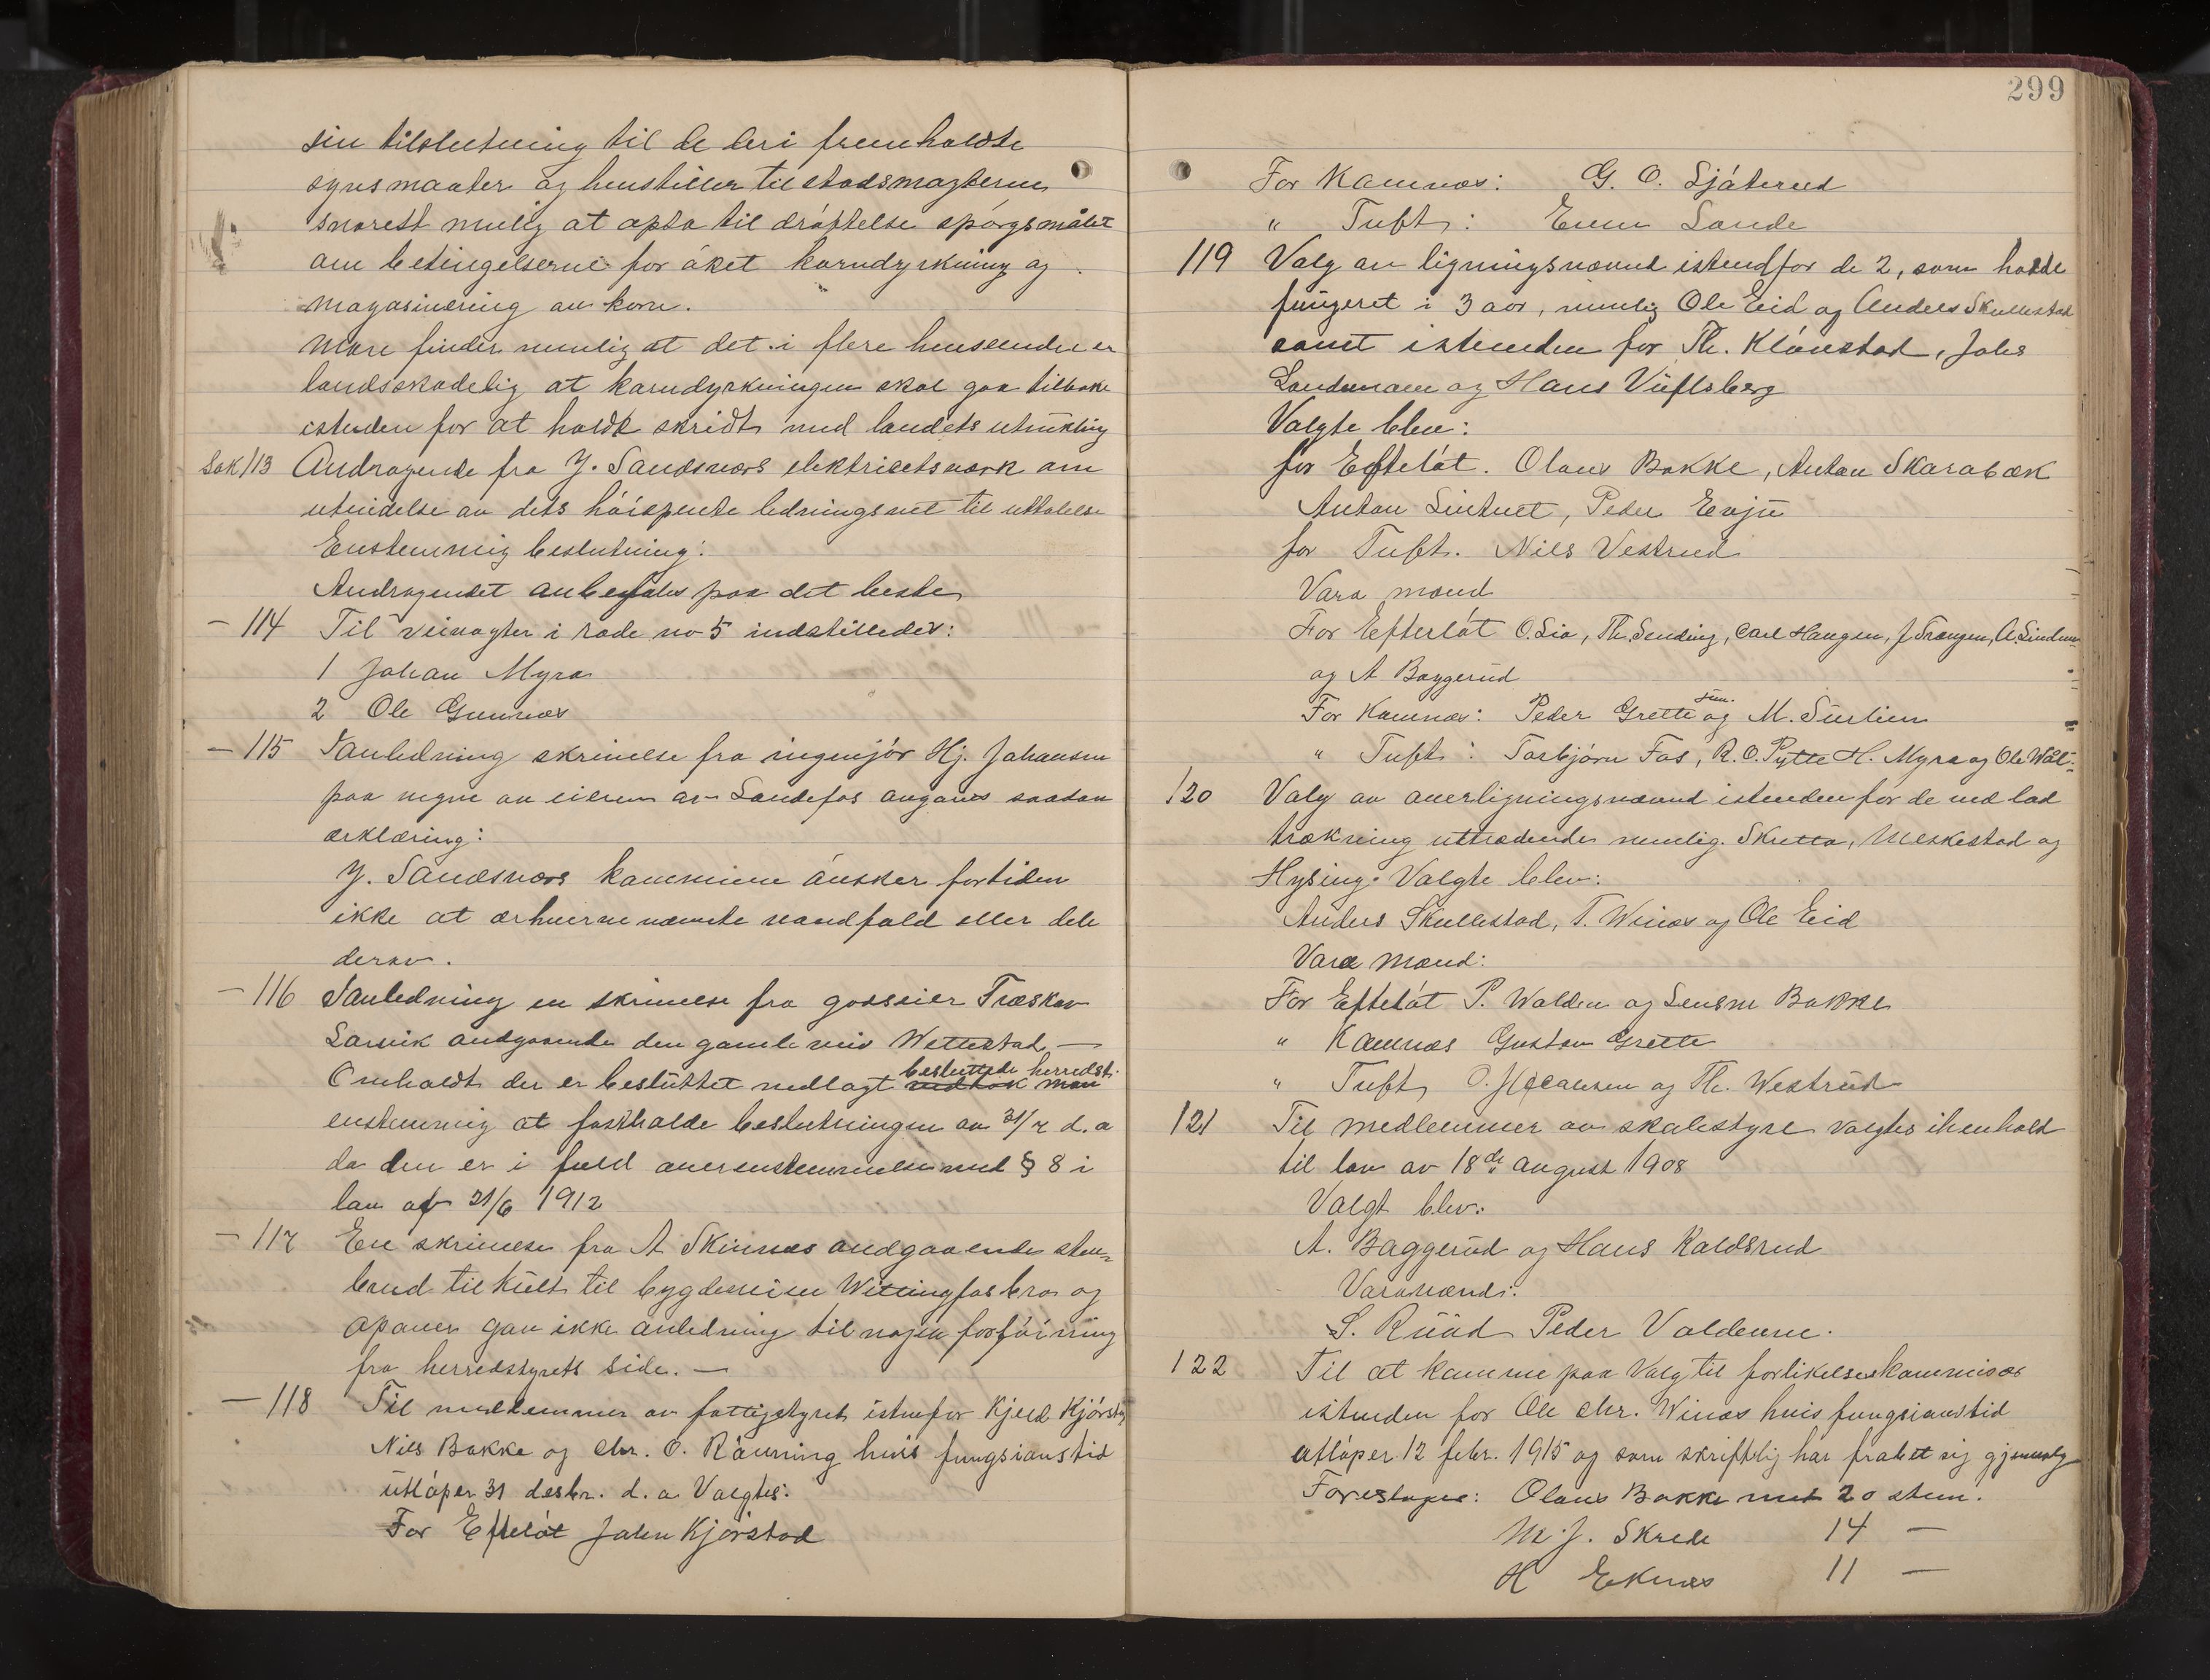 sin tilslutning til de deri fremholdte
synsmaater og henstiller til stadsmagterne
snarest mulig at opta til drøftelse spørgsmålet
om betingelserne for øket korndyrkning og
magasinering av korn.
Man finder nemlig at det i flere henseender er
landsskadelig at korndyrkningen skal gaa tilbake
isteden for at holde skridt med landets utvikling
Sak 113 Andragende fra Y. Sandsværs elektricitetsværk om
utvidelse av dets høispente ledningsnet til uttalelse
Enstemmig beslutning:
Andragendet anbefales paa det beste
- 114 Til veivogter i rode no 5 indstilledes:
1 Johan Myra
2 Ole Gunnes
- 115 I anledning skrivelse fra ingeniør Hj. Johansen
paa vegne av eieren av Sandefos avgaves saadan
erklæring:
Y. Sandsværs kommune ønsker fortiden
ikke at erhverve nævnte vandfald eller dele
derav.
- 116 I anledning en skrivelse fra godseier Treskov
Larvik angaaende den gamle vei Wettestad —
Omholdt der er besluttet nedlagt vedtok man besluttede herredst.
enstemmig at fastholde beslutningen av 31/7 d. a
da den er i fuld overensstemmelse med § 8 i
lov af 21/6 1912
- 117 En skrivelse fra A Skinnes andgaaende sten-
brud til kult til bygdeveien Wittingfosbro og
opover gav ikke anledning til nogen forføining
fra herredstyrets side. —
- 118 Til medlemmer av fattigstyret istenfor Kjeld Kjørstad
Nils Bakke og Chr. O. Rønning hvis fungsionstid
utløper 31 desbr. d. a. Valgtes:
For Efteløt John Kjørstad
299
For Komnes: G. O. Sjåterud
" Tuft: Even Sande
119 Valg av ligningsnævnd istedfor de 2, som hadde
fungeret i 3 aar, nemlig Ole Eid og Anders Skullestad
samt isteden for Th. Klønstad, Johs
Landsmann og Hans Vüflsberg
Valgte blev:
for Efteløt. Olaus Bakke, Anton Skarabæk
Anton Lintvet, Peder Evju
for Tuft. Nils Vestrud
Vara mænd
For Efteløt O. Lia, Th. Sending, Carl Haugen, J Trangen, A. Lindem
og A Baggerud
For Komnes: Peder Grette jun. og M. Surlien
" Tuft: Torbjørn Fos, R. O. Pytte H. Myra og Ole Wål-
120 Valg av overligningsnævnd isteden for de ved lod
trækning uttrædende nemlig. Skutta, Meskestad og
Hysing. Valgte blev:
Anders Skullestad, T. Winæs og Ole Eid
Vara mænd:
For Efteløt P. Walden og Lensm Bakke
" Komnes Gustav Grette
" Tuft O. Johansen og Th. Westrud
121 Til medlemmer av skolestyre valgtes i henhold
til lov av 18de august 1908
Valgt blev:
A. Baggerud og Hans Kaldsrud
Varamænd:
S. Ruud Peder Valdenne.
122 Til at komme paa Valg til forlikelseskommisær
isteden for Ole Chr. Winæs hvis fungsionstid
utløper 12 febr. 1915 og som skriftlig har frabet sig gjenvalg
Foreslages: Olaus Bakke med 20 stem.
M. J. Skrede 14 —
H Eknes 11 —